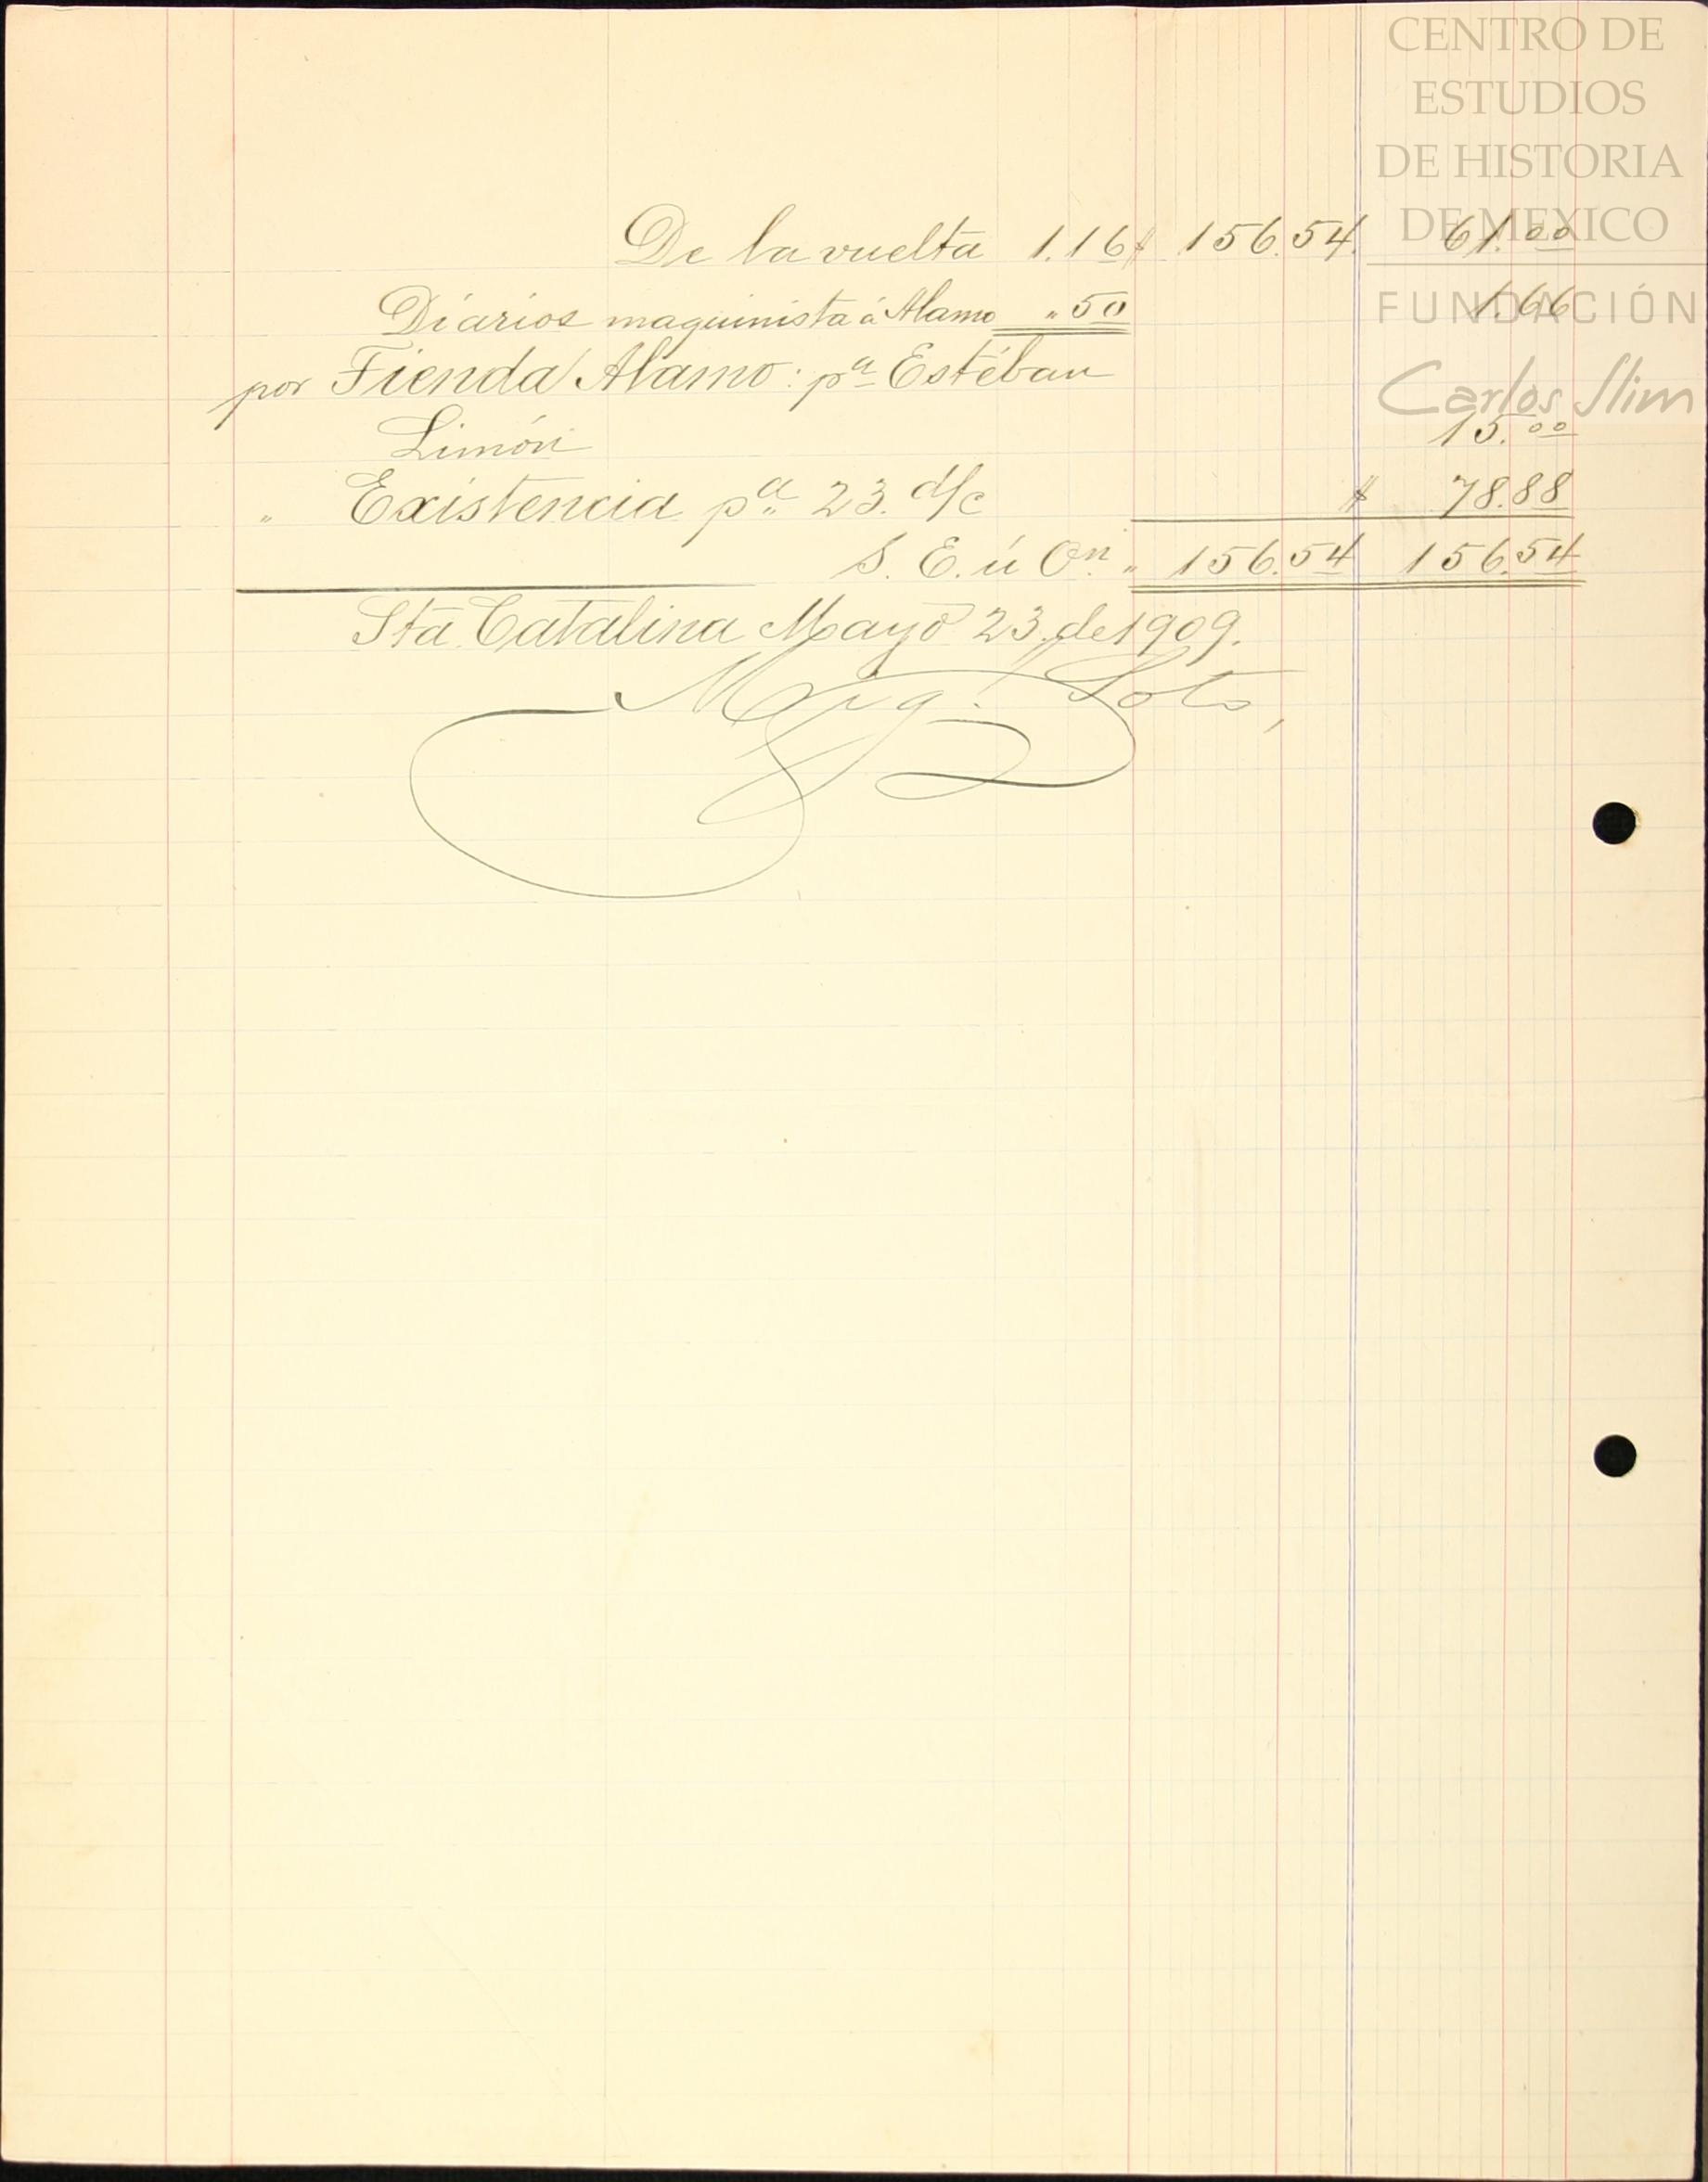 CENTRO DE
ESTUDIOS
DE HISTORIA
DE MEXICO
FUNDACIÓN
Carlos Slim
De la vuelta 1.16 $ 156.54. 61.00
Diarios maquinista á Alamo " 50 1.66
por Tienda Alamo: pa Estéban
Limón 15.00
" Existencia pa 23. d/c $ 78.88
S. E. ú On. " 156.54 156.54
Sta Catalina Mayo 23. de 1909.
Mig. Soto,